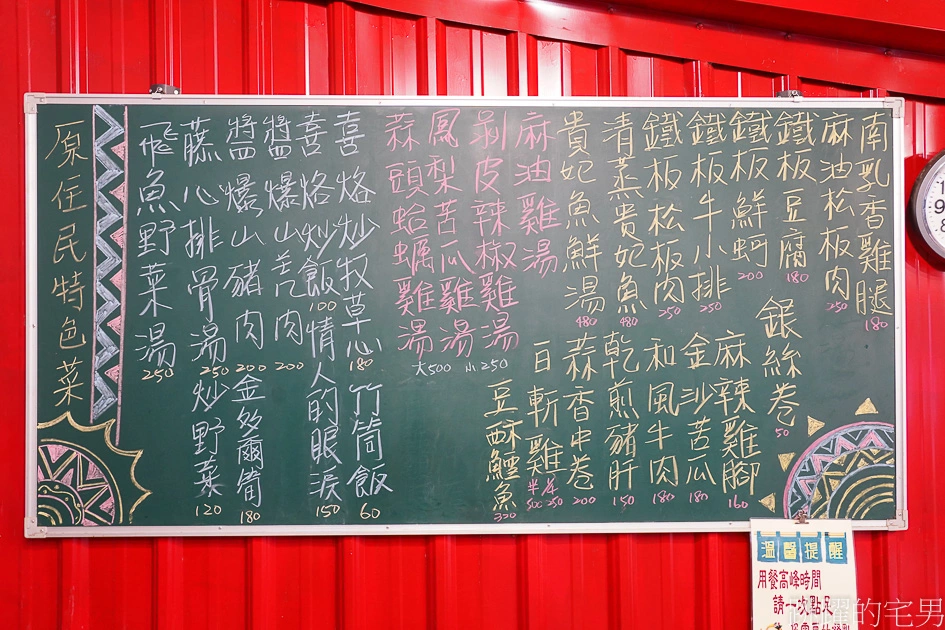 南乳香雞腿 180
麻油松板肉 250
鐵板豆腐 180
銀絲卷 50
鐵板鮮蚵 200
麻辣雞腳 160
鐵板牛小排 250
金沙苦瓜 180
鐵板松板肉 250
和風牛肉 180
清蒸貴妃魚 480
乾煎豬肝 150
貴妃魚鮮湯 480
蒜香中卷 200
麻油雞湯
白斬雞 半隻 500 250
剝皮辣椒雞湯
豆酥鱈魚 300
鳳梨苦瓜雞湯
蒜頭蛤蠣雞湯
大500 小250
喜烙炒牧草心 180
竹筒飯 60
喜烙炒飯 100
情人的眼淚 150
醬爆山羌肉 200
醬爆山豬肉 200
金多爾筍 180
藤心排骨湯 250
炒野菜 120
飛魚野菜湯 250
原住民特色菜
9
8
溫馨提醒
用餐高峰時間
請一次點足
的宅男